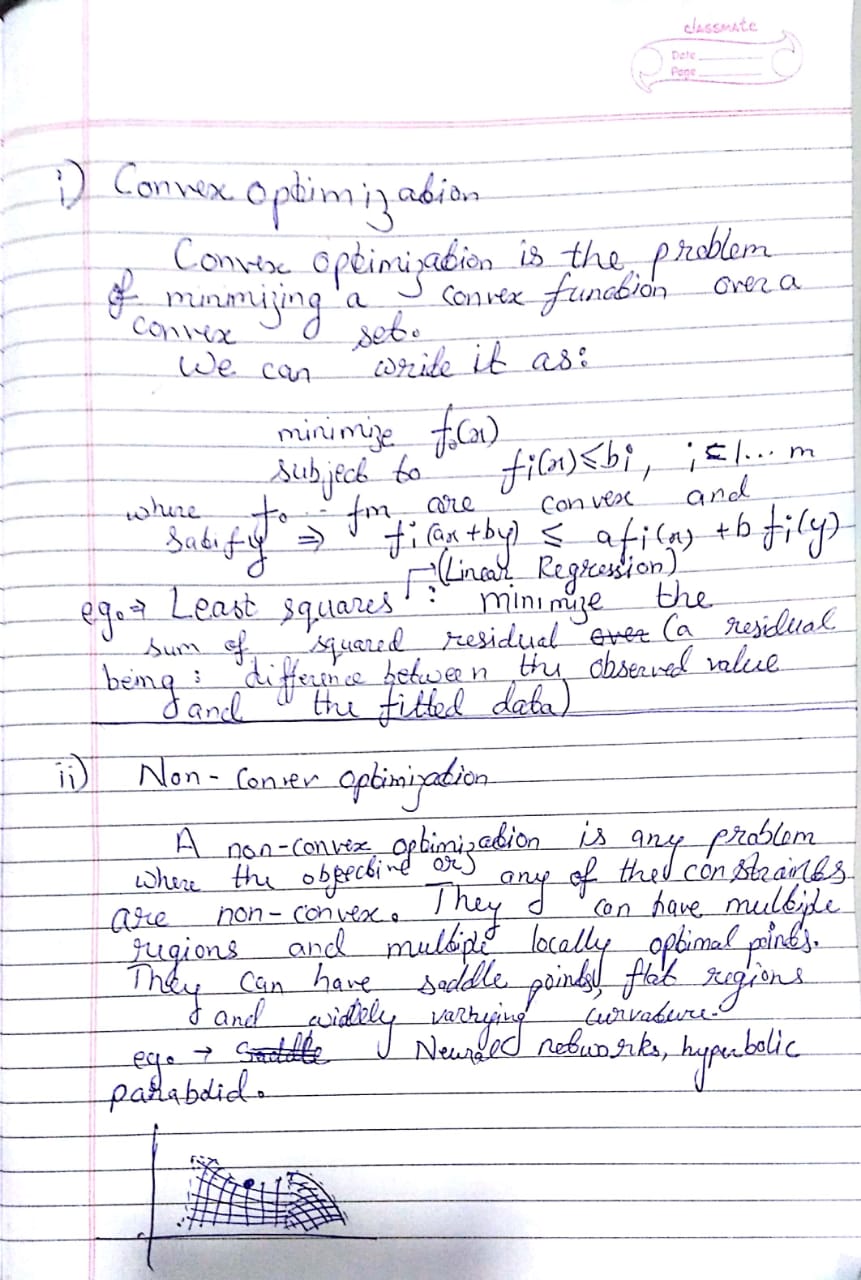 classmate
Date
Page
i) Convex optimization
Convex optimization is the problem
of minimizing a convex function over a
convex set.
We can write it as:
minimize f₀(x)
subject to fi(x) ≤ bi, i = 1... m
where f₀ .. fm are convex and
satify ⇒ fi(ax + by) ≤ a fi(x) + b fi(y)
(Linear Regression)
eg. → Least squares : minimize the
sum of squared residual over (a residual
being : difference between the observed value
and the fitted data)
ii) Non-Convex optimization
A non-convex optimization is any problem
where the objective or any of the constraints
are non-convex. They can have multiple
regions and multiple locally optimal points.
They can have saddle points, flat regions
and widely varying curvature.
eg. → Saddle Neural networks, hyperbolic
paraboloid.